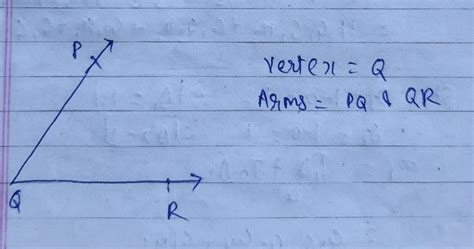 P
Vertex = Q
Arms = PQ & QR
Q
R